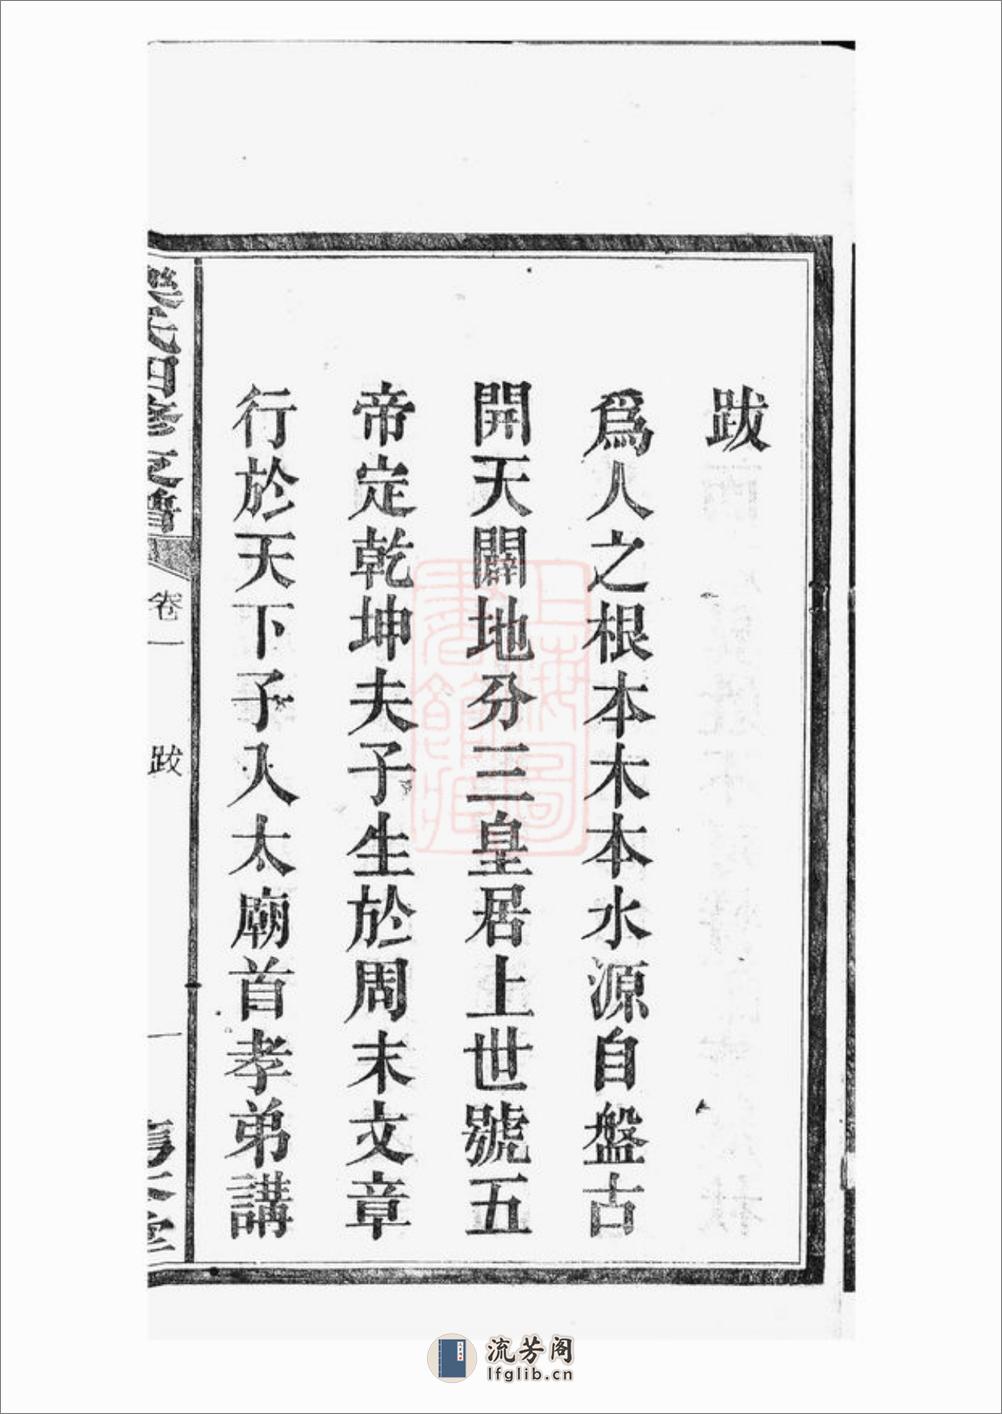 跋
爲人之根本木本水源自盤古
開天闢地分三皇居上世號五
帝定乾坤夫子生於周末文章
行於天下子入太廟首孝弟講
氏四修支譜
卷一
跋
一
堂
上海圖
書館藏
流芳阁
lfglib.cn